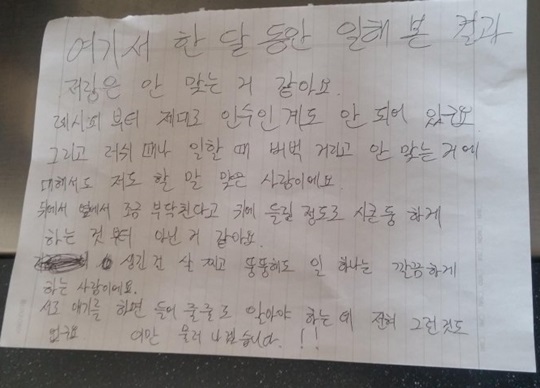 여기서 한 달 동안 일해 본 결과
저랑은 안 맞는 거 같아요.
레시피 부터 제대로 인수인계도 안 되어 있구요
그리고 러쉬 때나 일할 때 버벅 거리고 안 맞는 거에
대해서도 저도 할 말 많은 사람이에요.
뒤에서 옆에서 조금 부닥친다고 귀에 들릴 정도로 시큰둥 하게
하는 것 부터 아닌 거 같아요.
생긴 건 살 찌고 뚱뚱해도 일 하나는 깔끔하게
하는 사람이에요.
서로 얘기를 하면 들어 줄줄로 알아야 하는데 전혀 그런것도
없구요 이만 물러 나겠습니다.!!